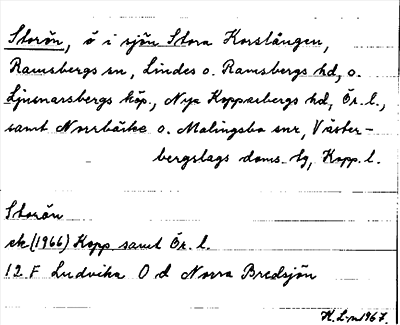 Storön, ö i sjön Stora Korslången,
Ramsbergs sn, Lindes o. Ramsbergs hd, o.
Ljusnarsbergs köp., Nya Kopparbergs hd, Ör. l.,
samt Norrbärke o. Malingsbo snr, Väster-
bergslags doms. tg, Kopp. l.
Storön
ek (1966) Kopp samt Ör. l.
12 F Ludvika O d Norra Bredsjön
H. L-n 1967.